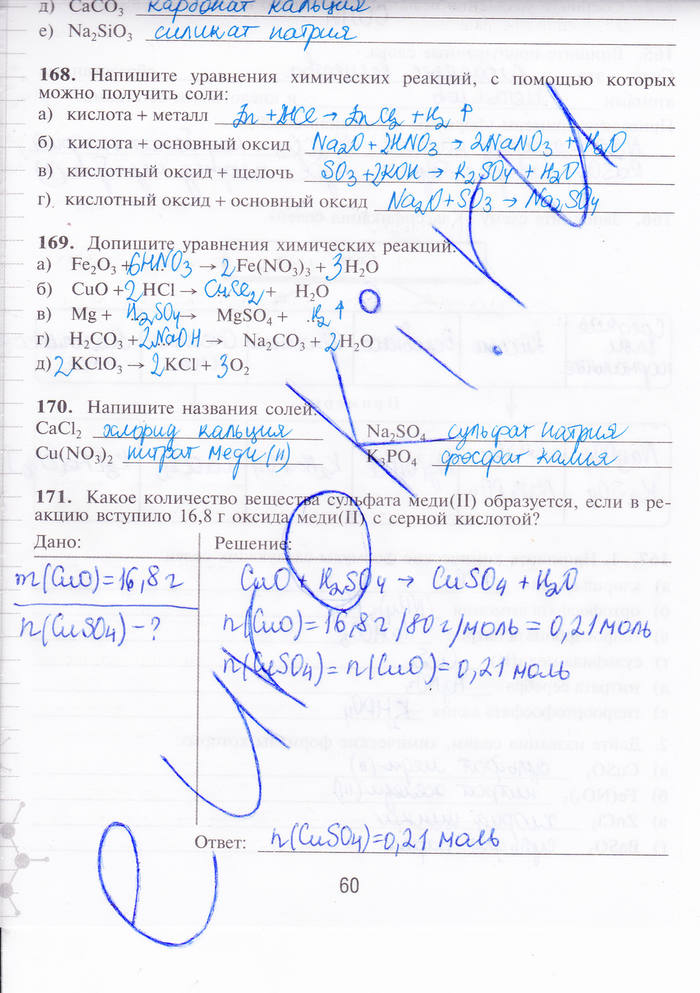 д) CaCO₃ карбонат кальция
е) Na₂SiO₃ силикат натрия
168. Напишите уравнения химических реакций, с помощью которых
можно получить соли:
а) кислота + металл Zn + 2HCl → ZnCl₂ + H₂ ↑
б) кислота + основный оксид Na₂O + 2HNO₃ → 2NaNO₃ + H₂O
в) кислотный оксид + щелочь SO₃ + 2KOH → K₂SO₄ + H₂O
г) кислотный оксид + основный оксид Na₂O + SO₃ → Na₂SO₄
169. Допишите уравнения химических реакций.
а) Fe₂O₃ + 6HNO₃ → 2Fe(NO₃)₃ + 3H₂O
б) CuO + 2HCl → CuCl₂ + H₂O
в) Mg + H₂SO₄ → MgSO₄ + H₂ ↑
г) H₂CO₃ + 2NaOH → Na₂CO₃ + 2H₂O
д) 2KClO₃ → 2KCl + 3O₂
170. Напишите названия солей.
CaCl₂ хлорид кальция Na₂SO₄ сульфат натрия
Cu(NO₃)₂ нитрат меди (II) K₃PO₄ фосфат калия
171. Какое количество вещества сульфата меди(II) образуется, если в ре-
акцию вступило 16,8 г оксида меди(II) с серной кислотой?
Дано: Решение:
m(CuO)=16,8 г CuO + H₂SO₄ → CuSO₄ + H₂O
n(CuSO₄) – ? n(CuO)=16,8 г/80 г/моль = 0,21 моль
n(CuSO₄) = n(CuO)=0,21 моль
Ответ: n(CuSO₄)=0,21 моль
60